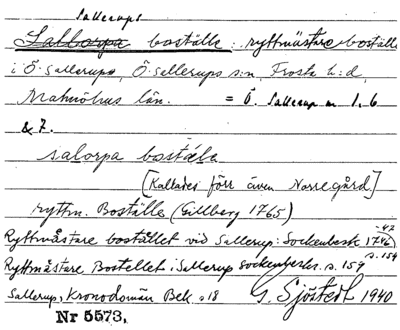 Sallerups
Sallorpa boställe: ryttmästareboställe
i Ö. Sallerups, Ö. Sallerups s:n, Frosta h:d,
Malmöhus län. = Ö. Sallerup nr 1, 6
& 7.
salorpa boställe
[Kallades förr även Norregård]
ryttm. Boställe (Gillberg 1765)
Ryttmästare bostället vid Sallerup: Sockenbeskr. 1746)
s. 159
Ryttmästare Bostellet i Sallerup Sockenbeskr. s. 159
Sallerup, Kronodomän Bek s 18 G. Sjöstedt 1940
Nr 5573.